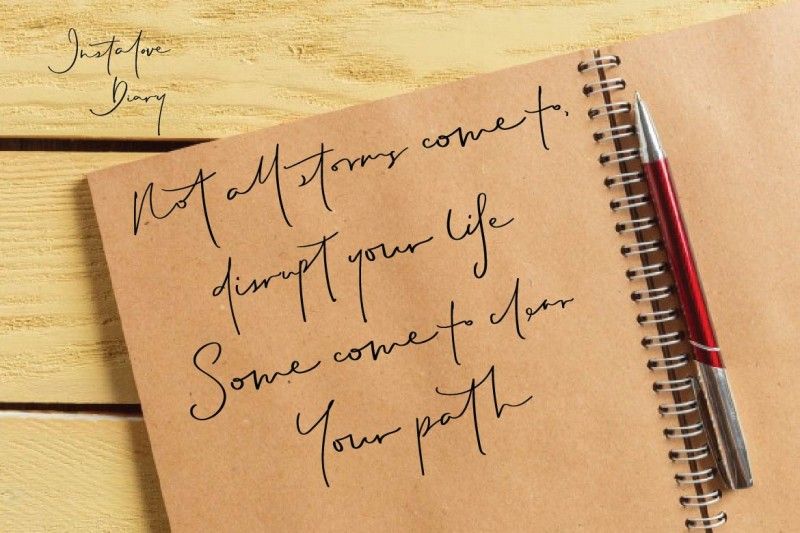 Instalove
Diary
Not all storms come to,
disrupt your life
Some come to clear
Your path